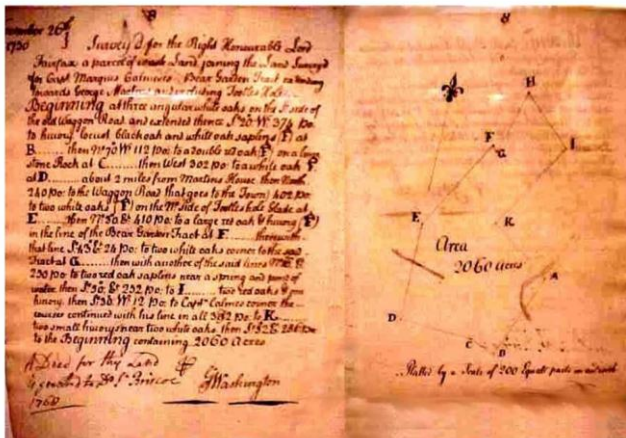 8
8
26th
1750
Survey'd for the Right Honourable Lord
Fairfax a parcel of Land joining the Land Survey'd
for Capt Marquis Calmeses Bear Garden Tract extending
towards George Martins and including Tootles Hole
Beginning at three angular white oaks on the Et side of
the old Waggon Road and extended thence So 20 Wt 374 po
to hiccory locust black oak and white oak saplins (F) at
B then No 70 Wt 112 po to a double red oak (F) on a
Stone Rock at C then West 302 po to a white oak F
at D about 2 miles from Martins House then North
240 po to the Waggon (Road that goes to the Town) 402 po
to two white oaks (F) on the Wt side of Tootles hole Glade at
E then No 30 Et 410 po to a large red oak & hiccory (F)
in the line of the Bear Garden Tract at F
that line So 43 Et 24 po to two white oaks corner to the said
Tract at G then with another of the said lines No Et
250 po to two red oak saplins near a spring and pond of
water then So 30 Et 292 po to I two red oaks &
hiccory then So 30 Wt 12 po to Capt Calmes corner the
courses continued with his line in all 382 po to K
two small hiccorys near two white oaks then So 52 Et 286 po
to the Beginning containing 2060 Acres
A Deed for this Land
GWashington
is granted to Briscoe
H
F
G
I
E
K
Area
2060 Acres
A
D
C
B
Platted by a Scale of 200 Equall parts